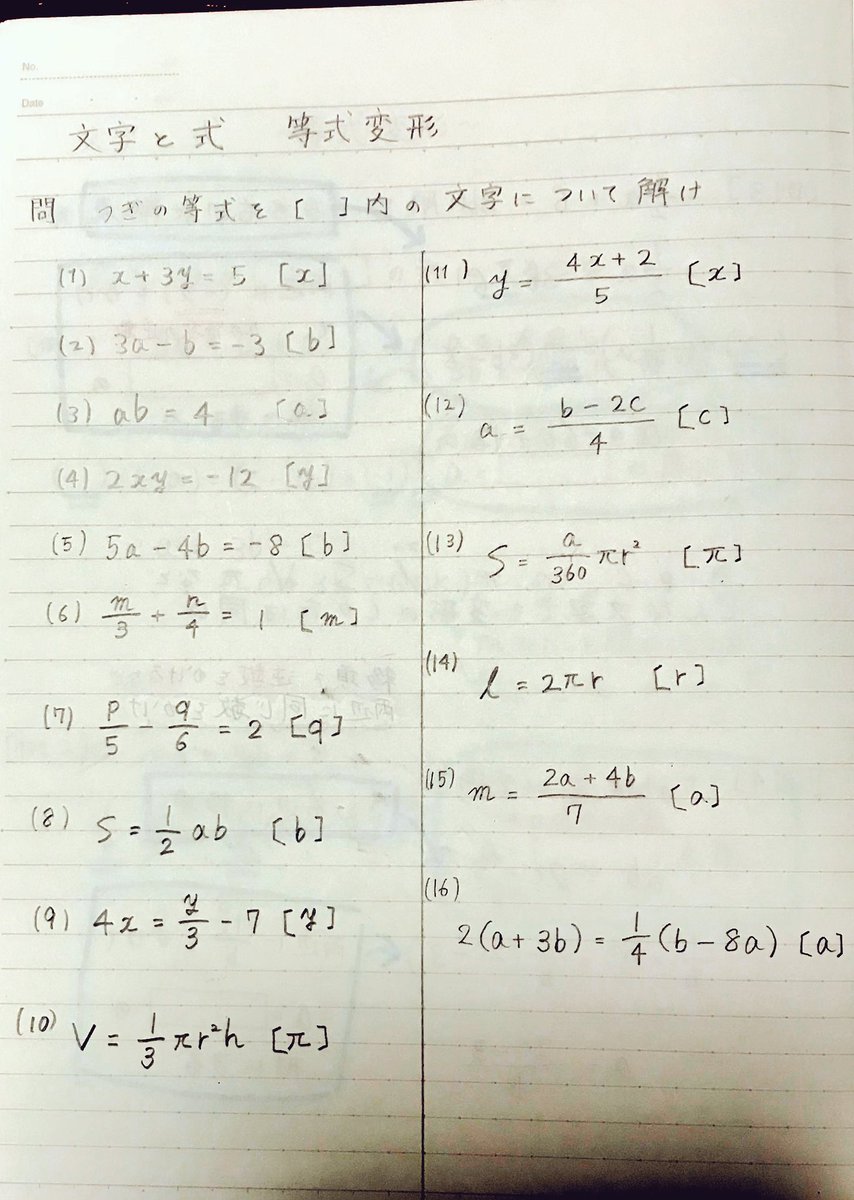 No.
Date
文字と式 等式変形
問 つぎの等式を [ ] 内の文字について解け
(1) x + 3y = 5 [x]
(2) 3a - b = -3 [b]
(3) ab = 4 [a]
(4) 2xy = -12 [y]
(5) 5a - 4b = -8 [b]
(6) m/3 + n/4 = 1 [m]
(7) p/5 - q/6 = 2 [q]
(8) S = 1/2 ab [b]
(9) 4x = y/3 - 7 [y]
(10) V = 1/3 πr²h [π]
(11) y = (4x + 2)/5 [x]
(12) a = (b - 2c)/4 [c]
(13) S = a/360 πr² [π]
(14) l = 2πr [r]
(15) m = (2a + 4b)/7 [a]
(16)
2(a + 3b) = 1/4 (b - 8a) [a]